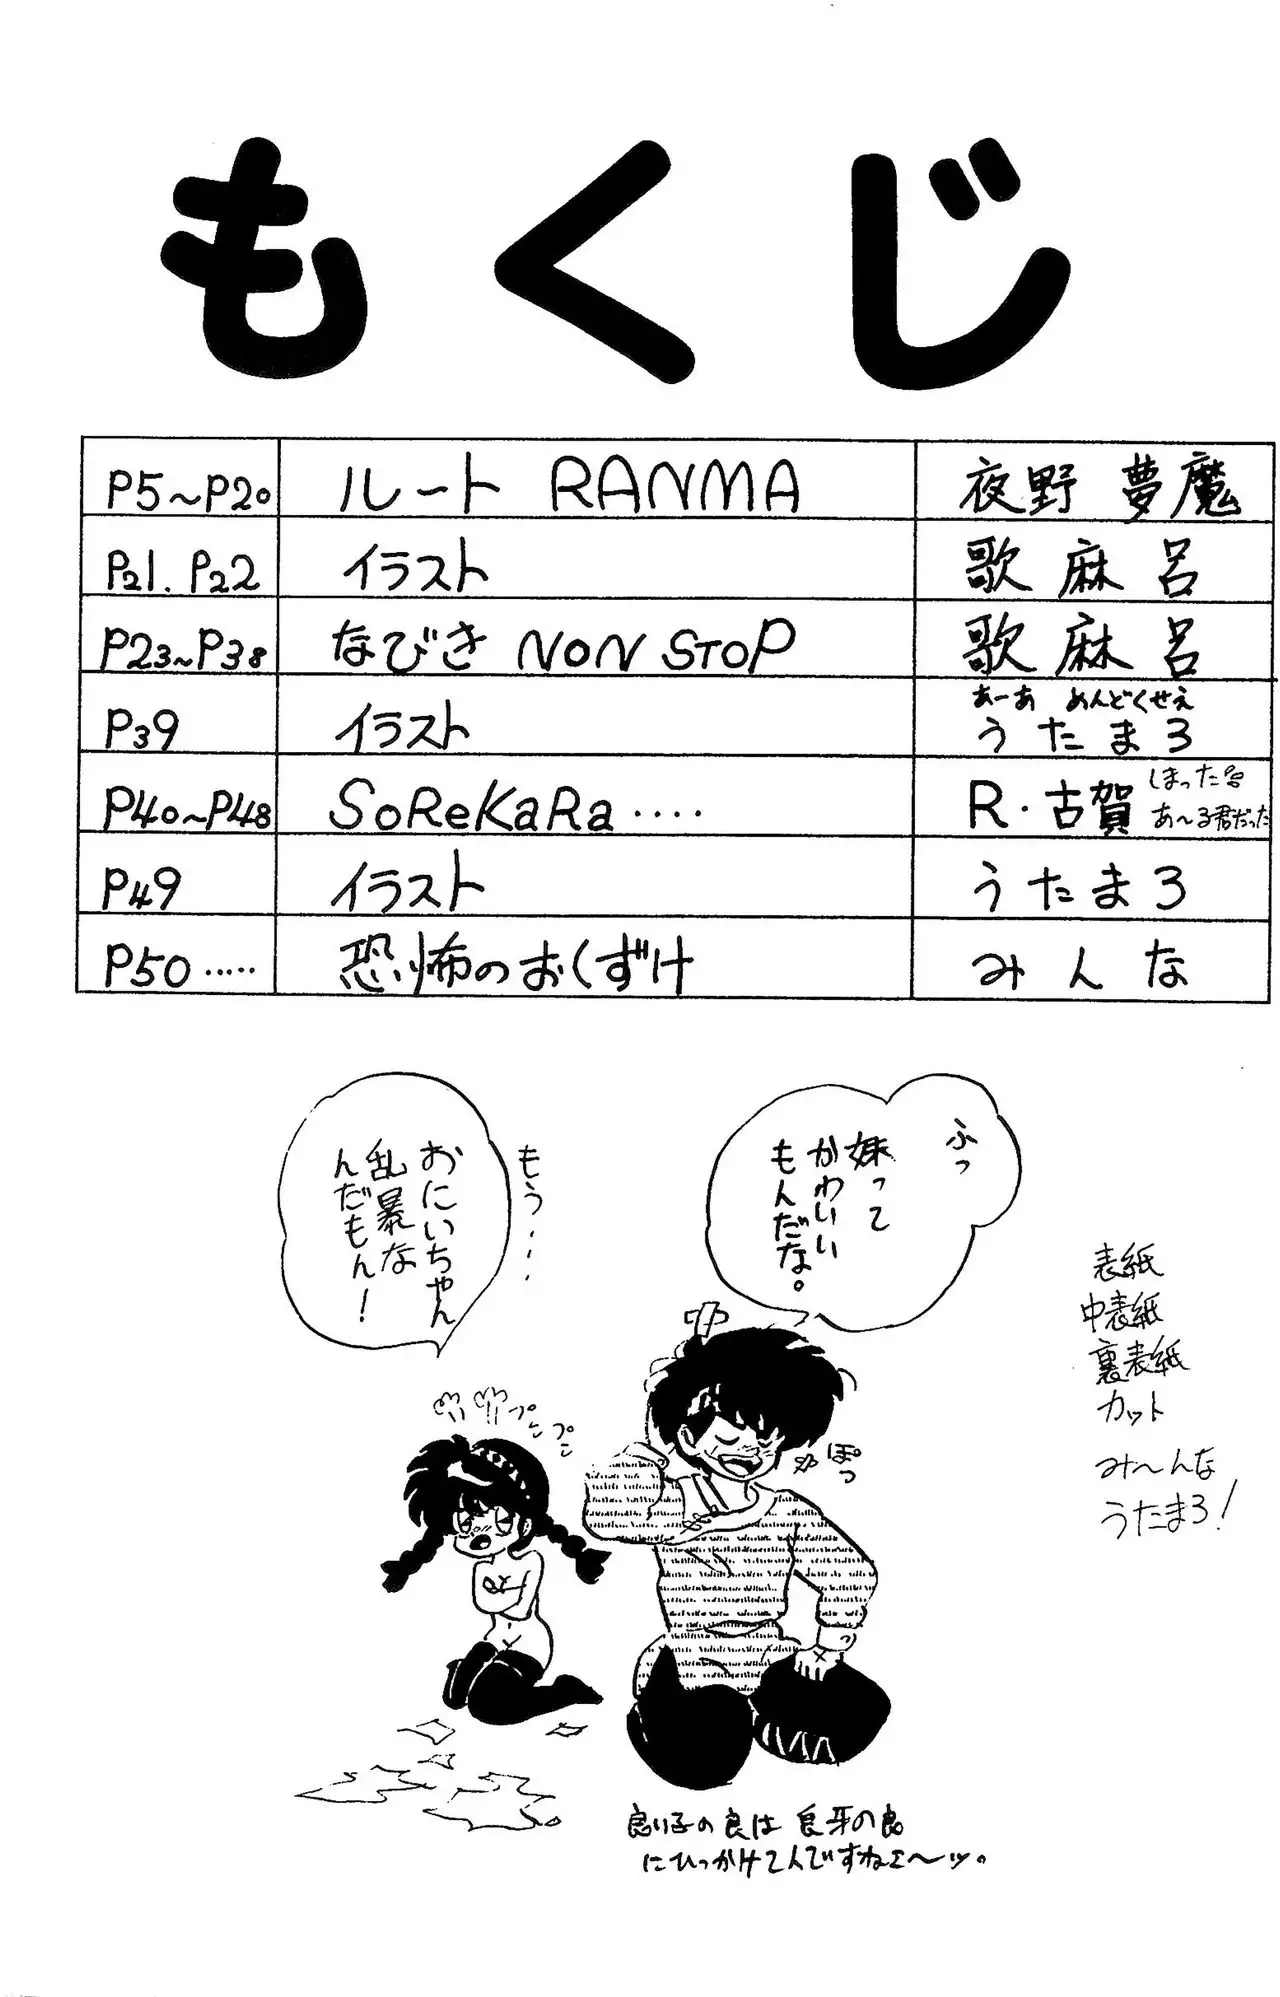 もくじ
P5～P20 ルート RANMA 夜野 夢魔
P21. P22 イラスト 歌麻呂
P23～P38 なびき NON STOP 歌麻呂
あーあ めんどくせえ
P39 イラスト うたまろ
P40～P48 SoReKaRa‥‥ R・古賀 しまった
あ～る君だった
P49 イラスト うたまろ
P50‥‥‥ 恐怖のおくずけ みんな
ふっ
妹って
かわいい
もんだな。
もう‥‥
おにいちゃん
乱暴な
んだもん！
プン
プン
ぽっ
表紙
中表紙
裏表紙
カット
み～んな
うたまろ！
良い子の良は 良牙の良
にひっかけてんですねェ～ッ。